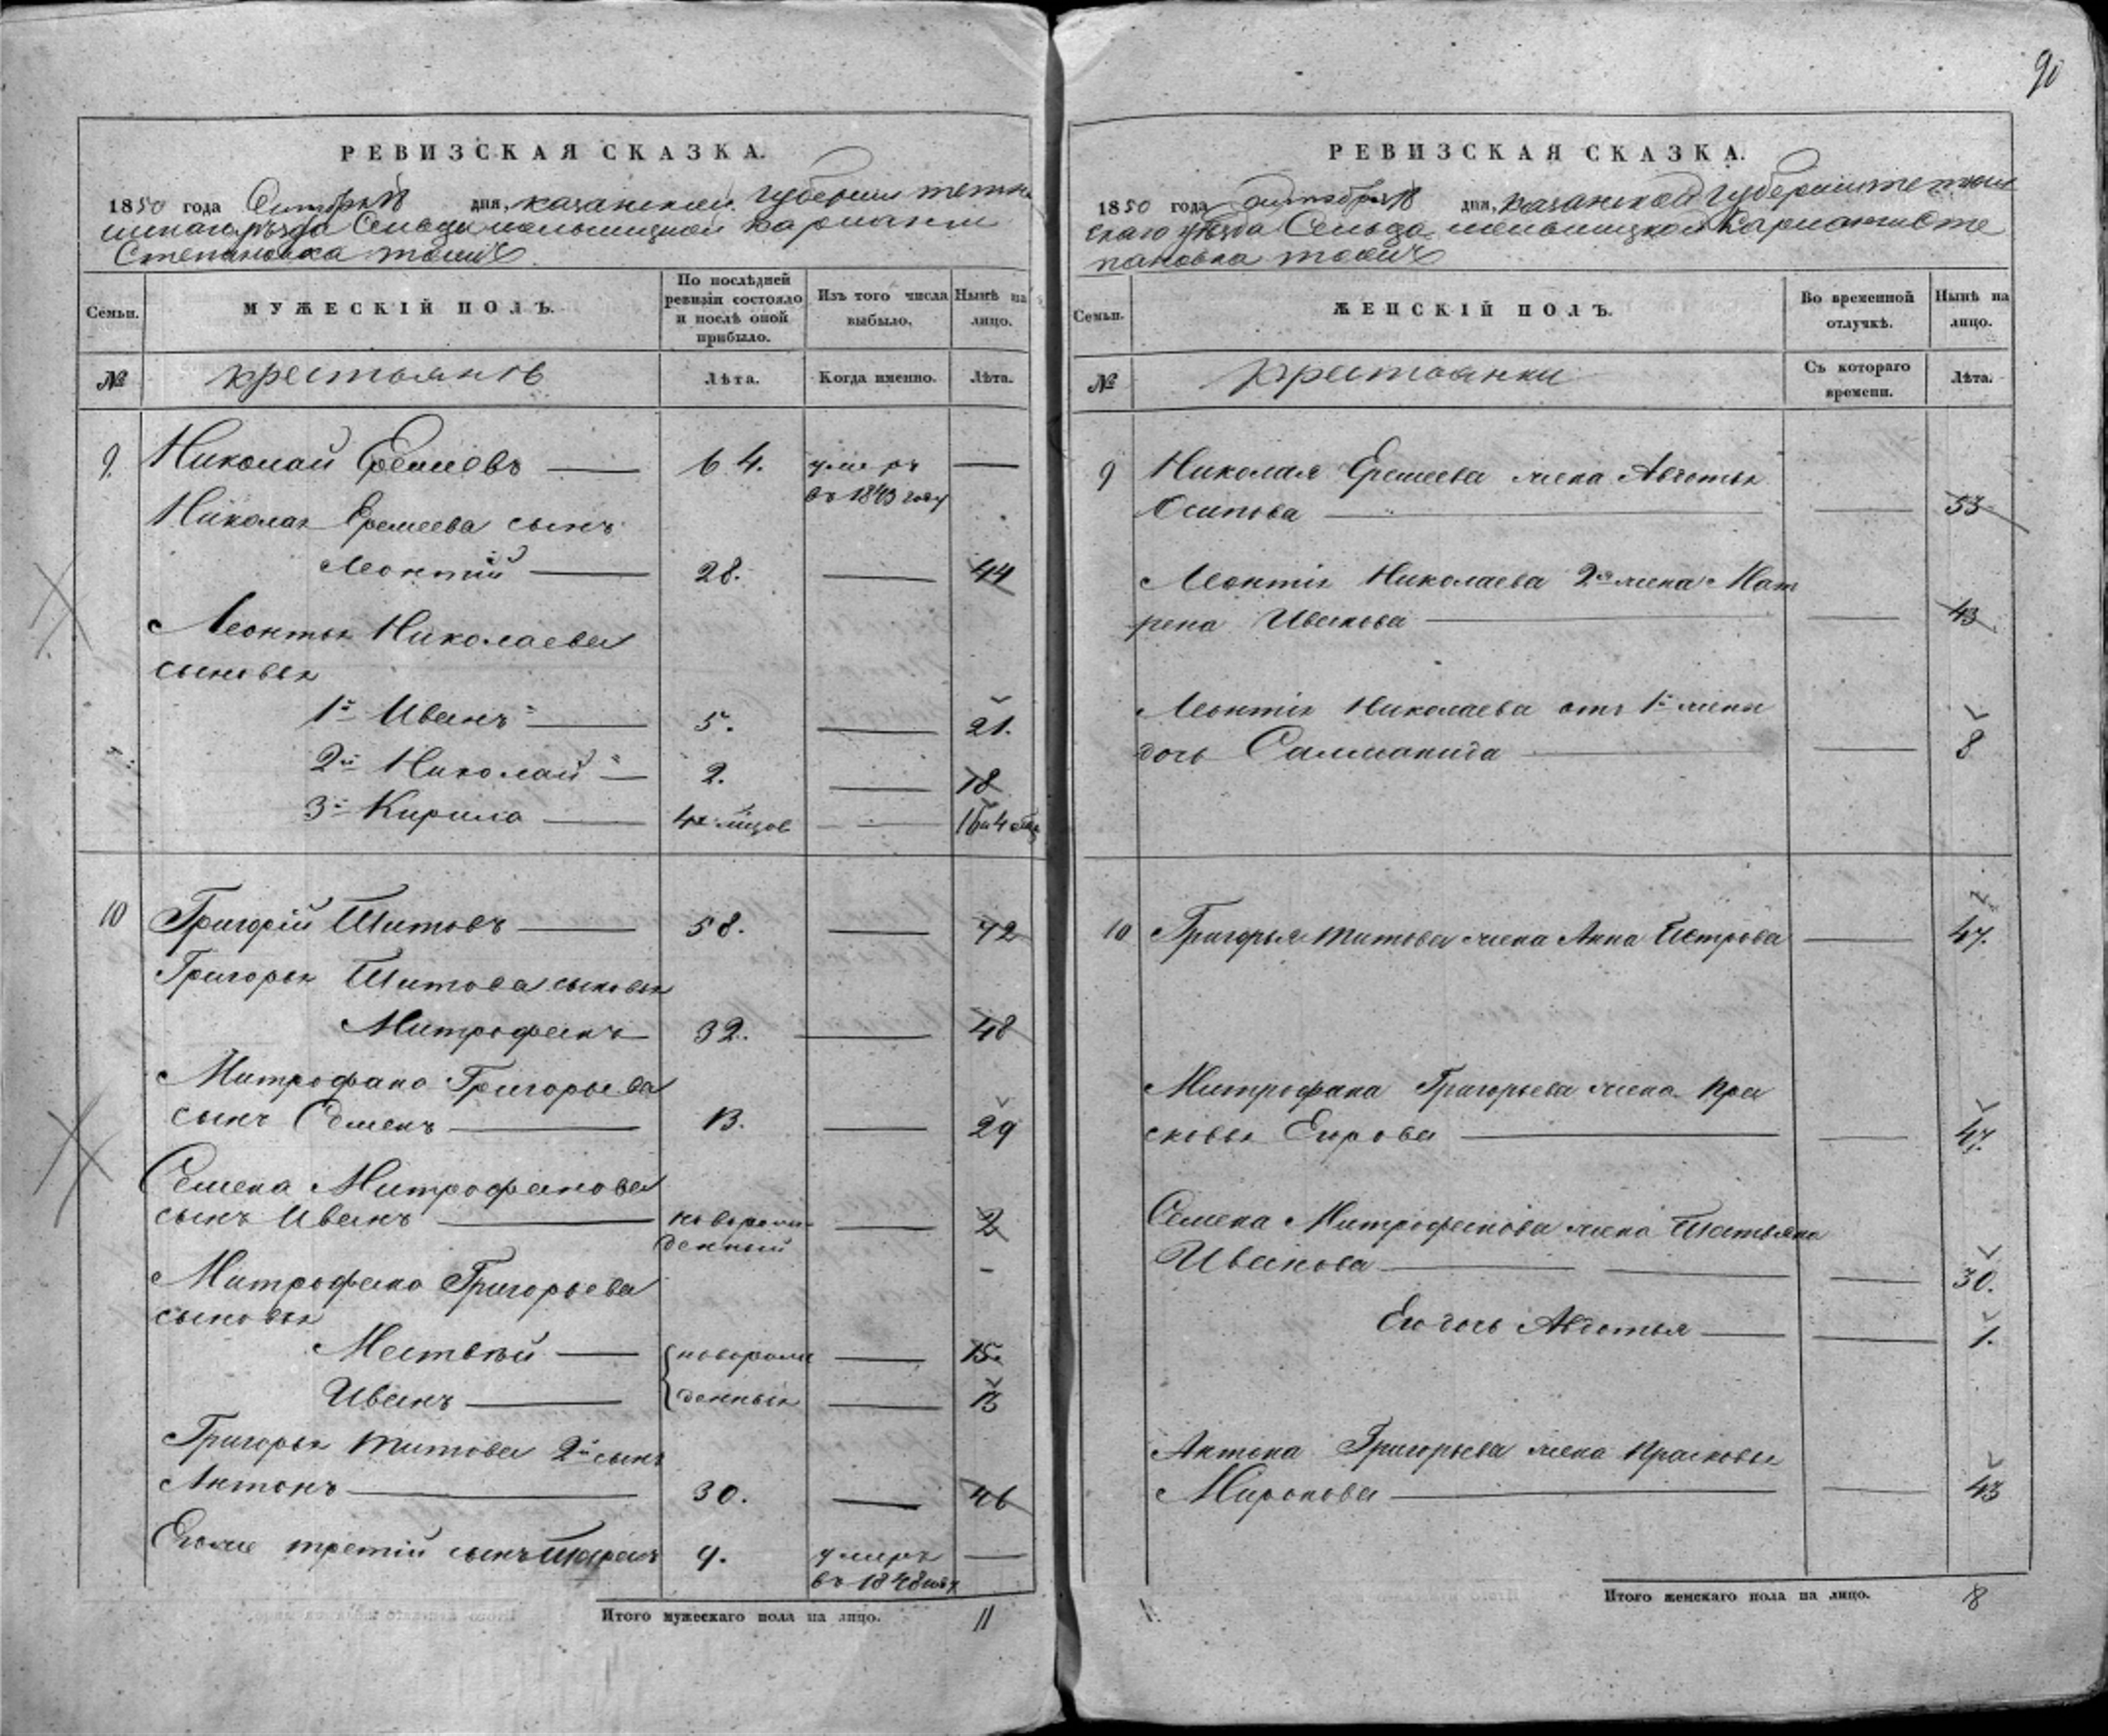 РЕВИЗСКАЯ СКАЗКА.
1850 года Октября 18 дня, казанской губернии тетю
шскаго уѣзда Сельца мельницкой Карланги
Степановка тожъ
Семьи.
МУЖЕСКІЙ ПОЛЪ.
По послѣдней ревизіи состояло и послѣ оной прибыло.
Изъ того числа выбыло.
Нынѣ на лицо.
№
крестьянъ
Лѣта.
Когда именно.
Лѣта.
9. Николай Еремеевъ 64. умеръ
въ 1843 году
Николая Еремеева сынъ
Леонтій 28. 44
Леонтья Николаева
сыновья
1й Иванъ 5. 21.
2й Николай 2. 18
3й Кирила 4х мѣцов 16 и 4
10 Григорій Титовъ 58. 72
Григорья Титова сыновья
Митрофанъ 32. 48
Митрофана Григорьева
сынъ Семенъ 13. 29
Семена Митрофанова
сынъ Иванъ новорож 2
денный
Митрофана Григорьева
сыновья
Матвѣй новорож 15.
Иванъ денныя 13
Григорья титова 2й сынъ
Антонъ 30. 46
Егоже третій сынъ 9. умеръ
въ 1848 году
Итого мужескаго пола на лицо. 11
90
РЕВИЗСКАЯ СКАЗКА.
1850 года октября 18 дня, казанской губернии тетюш
скаго уѣзда Сельца мельницкой Карланги Сте
пановка тожъ
Семьи.
ЖЕНСКІЙ ПОЛЪ.
Во временной отлучкѣ.
Нынѣ на лицо.
№
крестьянки
Съ котораго времени.
Лѣта.
9 Николая Еремеева жена Авдотья
Осипова 53
Леонтія Николаева 2я жена Мат
рена Иванова 43
Леонтія Николаева отъ 1й жены
дочь Саломанида 8
10 Григорья титова жена Анна Петрова 47.
Митрофана Григорьева жена Пра
сковья Егорова 47.
Семена Митрофанова жена Татьяна
Иванова 30.
Его дочь Авдотья 1.
Антона Григорьева жена Прасковья
Миронова 43
Итого женскаго пола на лицо. 8